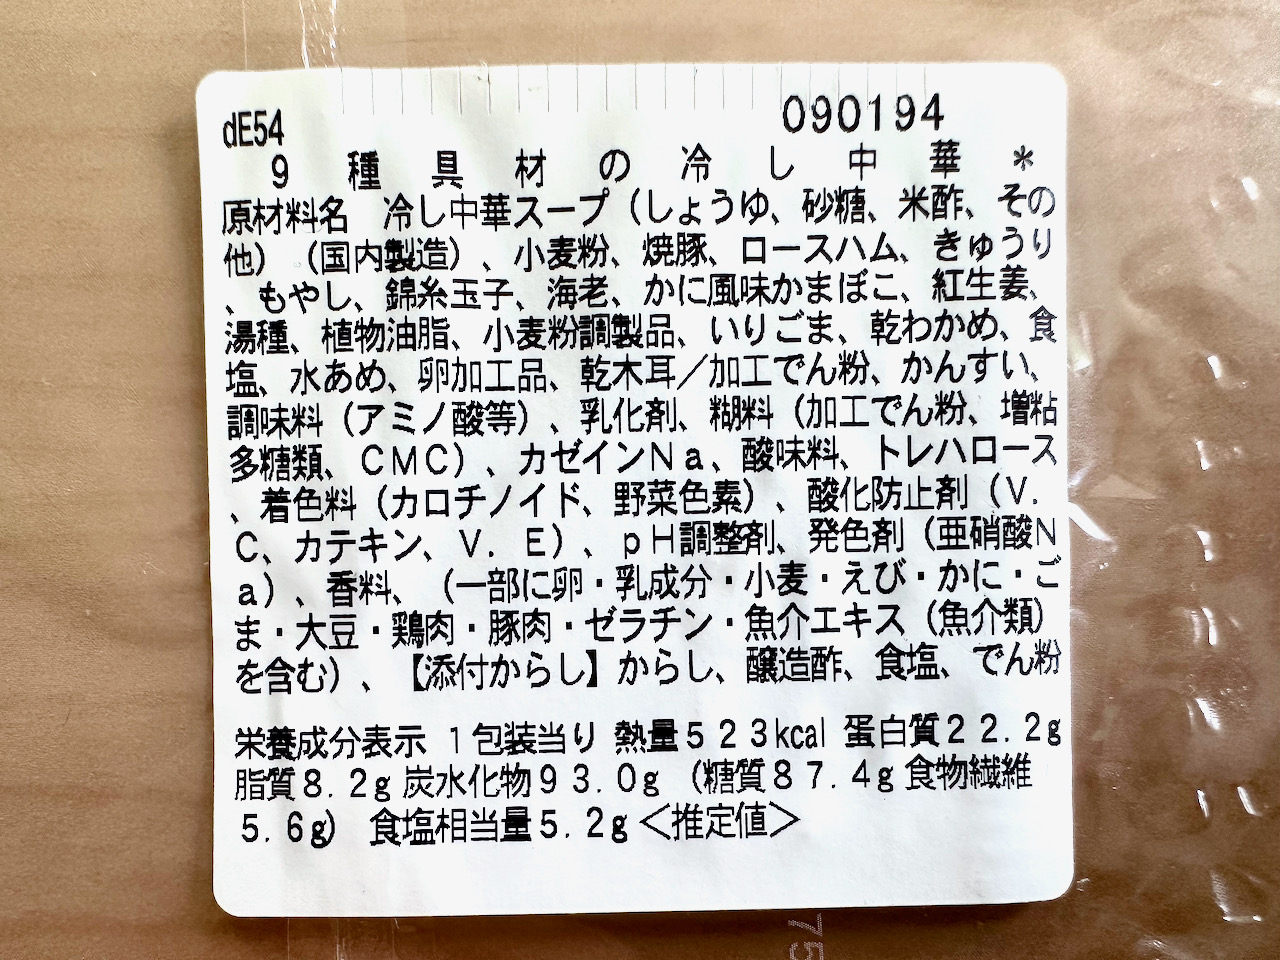 dE54
090194
9種具材の冷し中華＊
原材料名　冷し中華スープ（しょうゆ、砂糖、米酢、その
他）（国内製造）、小麦粉、焼豚、ロースハム、きゅうり
、もやし、錦糸玉子、海老、かに風味かまぼこ、紅生姜、
湯種、植物油脂、小麦粉調製品、いりごま、乾わかめ、食
塩、水あめ、卵加工品、乾木耳／加工でん粉、かんすい、
調味料（アミノ酸等）、乳化剤、糊料（加工でん粉、増粘
多糖類、ＣＭＣ）、カゼインＮａ、酸味料、トレハロース
、着色料（カロチノイド、野菜色素）、酸化防止剤（Ｖ．
Ｃ、カテキン、Ｖ．Ｅ）、ｐＨ調整剤、発色剤（亜硝酸Ｎ
ａ）、香料、（一部に卵・乳成分・小麦・えび・かに・ご
ま・大豆・鶏肉・豚肉・ゼラチン・魚介エキス（魚介類）
を含む）、【添付からし】からし、醸造酢、食塩、でん粉
栄養成分表示 １包装当り 熱量５２３kcal 蛋白質２２．２ｇ
脂質８．２ｇ 炭水化物９３．０ｇ （糖質８７．４ｇ 食物繊維
５．６ｇ） 食塩相当量５．２ｇ＜推定値＞
75